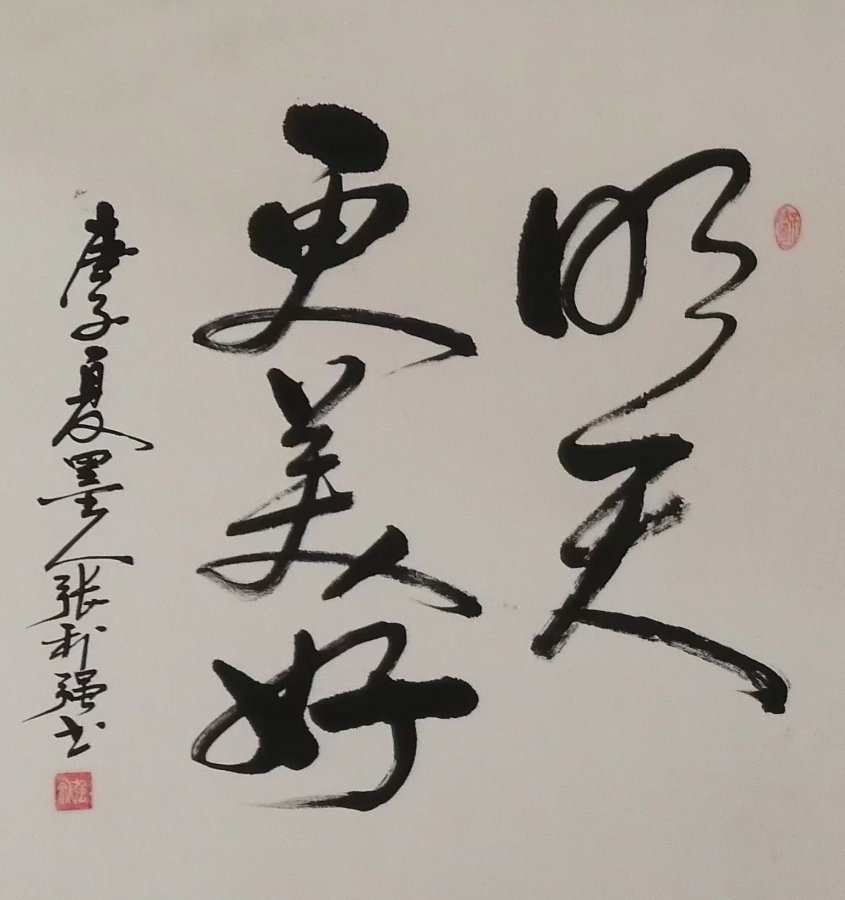 明天
更美好
庚子夏墨人张利强书